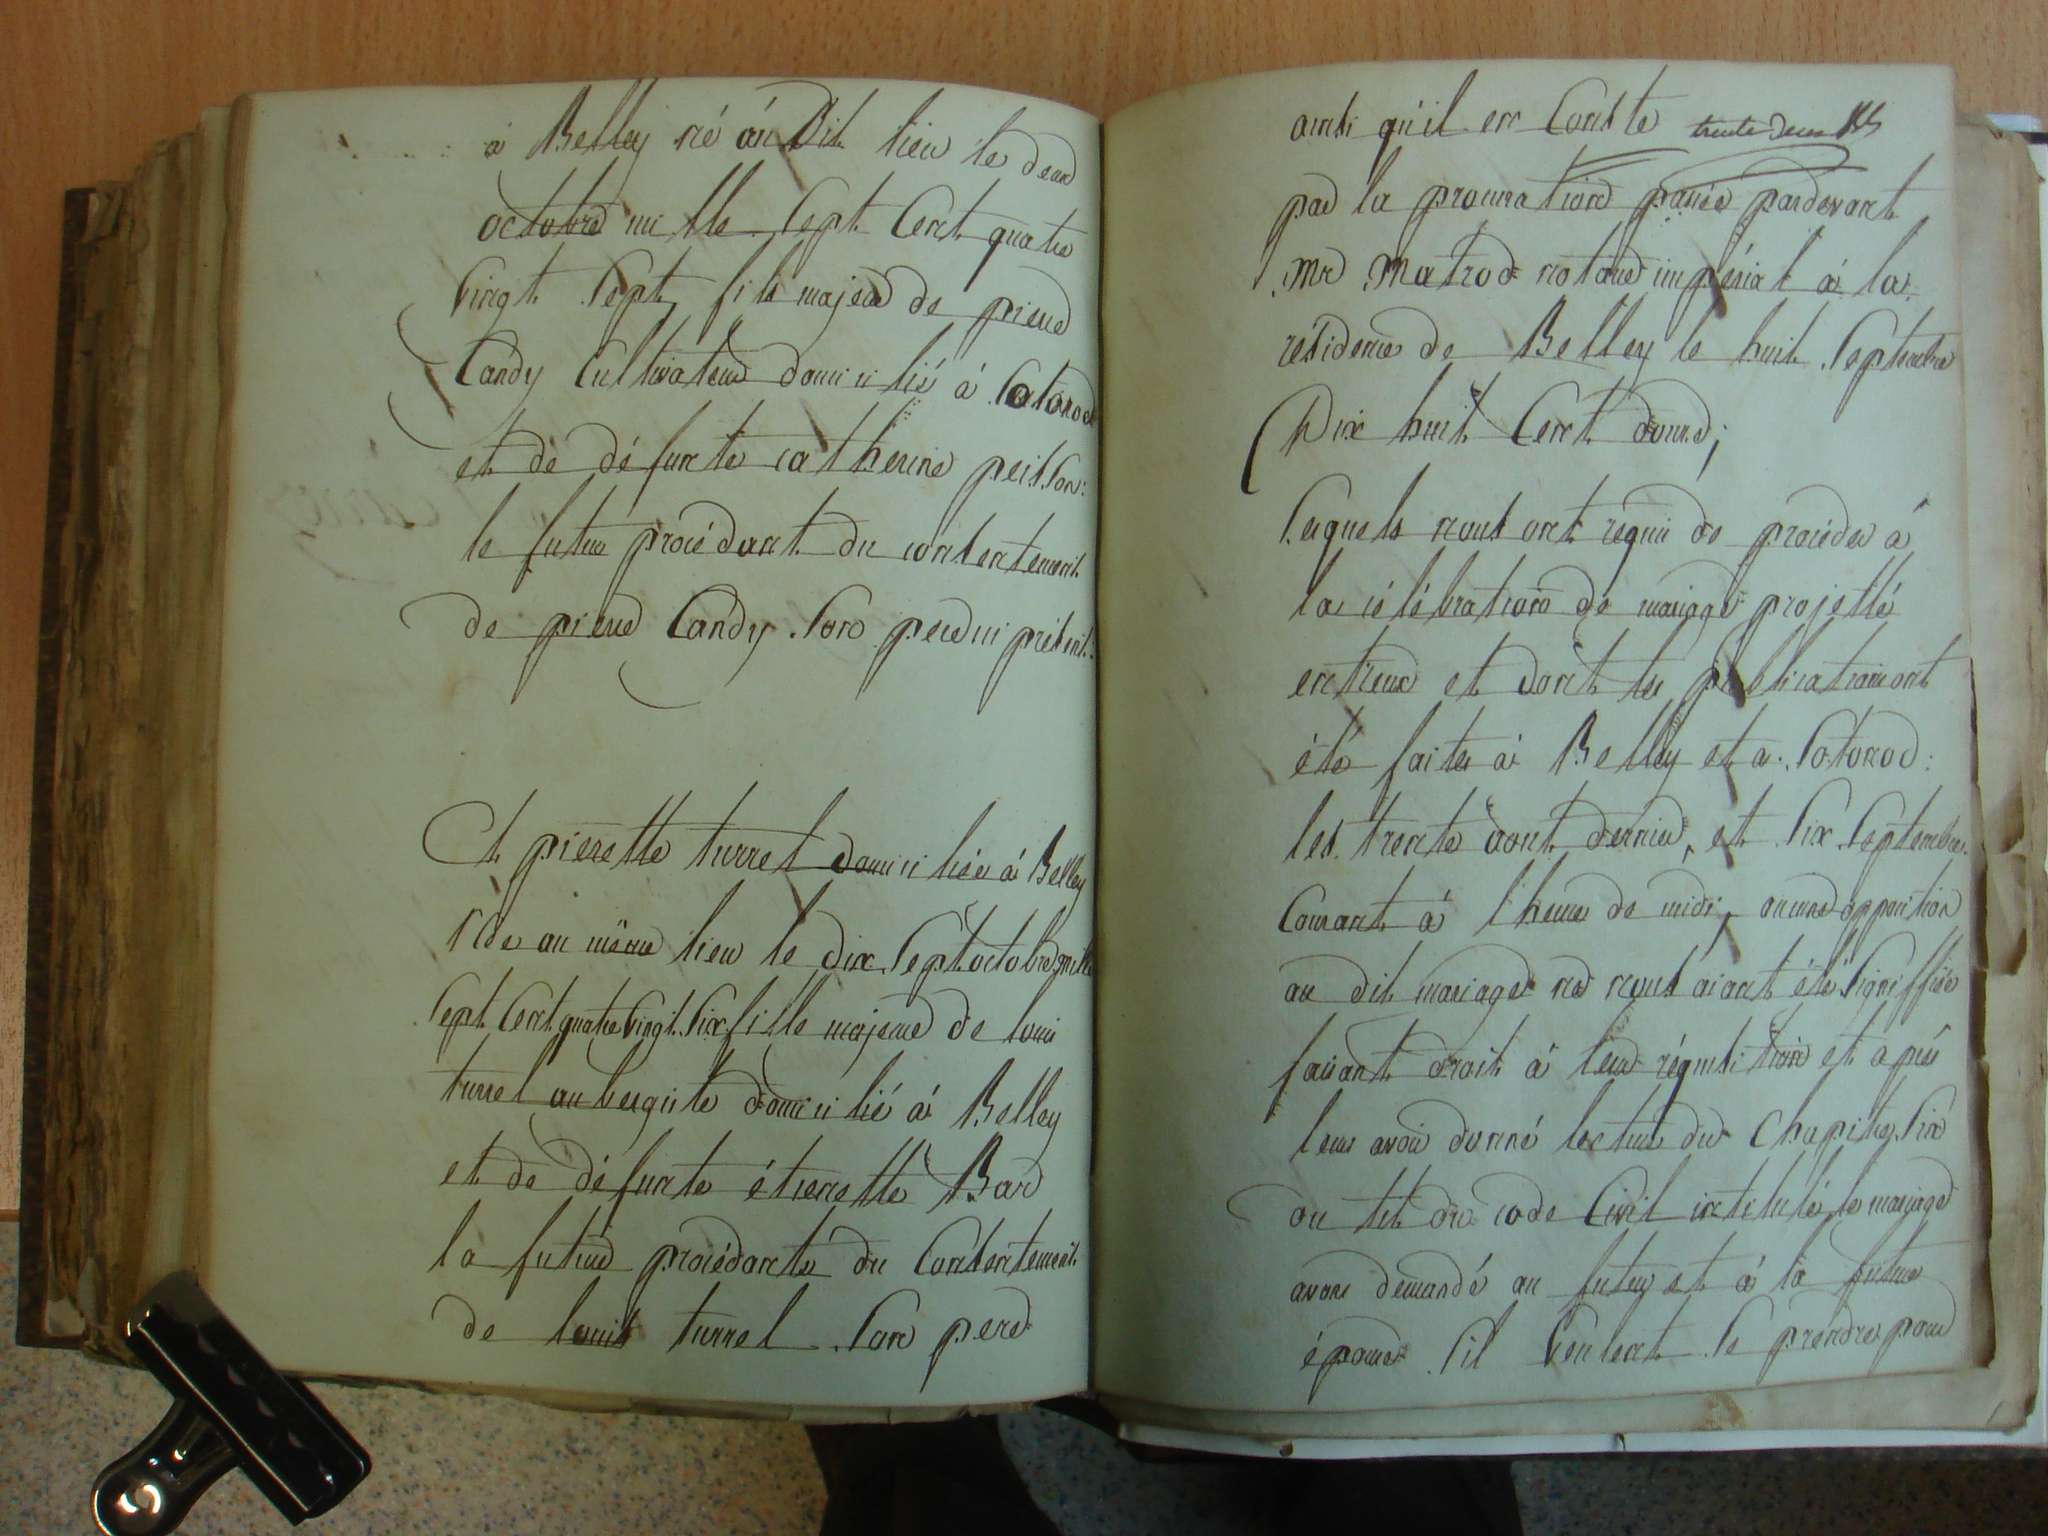 à Belley né au Dit lieu le deux
octobre mille Sept Cent quatre
Vingt Sept, fils majeur de pierre
Candy Cultivateur domicilié à Sotonod
et de défunte catherine peisson:
le futur procédant du consentement
de pierre Candy Son pere ici présent:
Et pierette turrel domiciliée à Belley
née au même lieu le dix Sept octobre mille
Sept Cent quatre Vingt Six fille majeure de louis
turrel aubergiste domicilié à Belley
et de défunte étienette Bar
la future procédante du Consentement
de louis turrel Son pere
ainsi qu'il en Conste trente deux
par la procuration passée pardevant
Mr Matrod notaire impérial à la
résidence de Belley le huit Septembre
Dix huit Cent douze;
Lesquels nous ont réquis de procéder à
la célébration de mariage projetté
entreux et dont les publications ont
été faites à Belley et a Sotonod:
les trente aout dernier, et Six Septembre
Courant à l'heure de midi, aucune opposition
au dit mariage ne nous aiant été Signiffiée
faisant droit à leur réquisition et aprés
leur avoir donné lecture du Chapitre Six
du tit du code Civil intitulé le mariage
avons demandé au futur et à la future
épouse S'il Veulent Se prendre pour